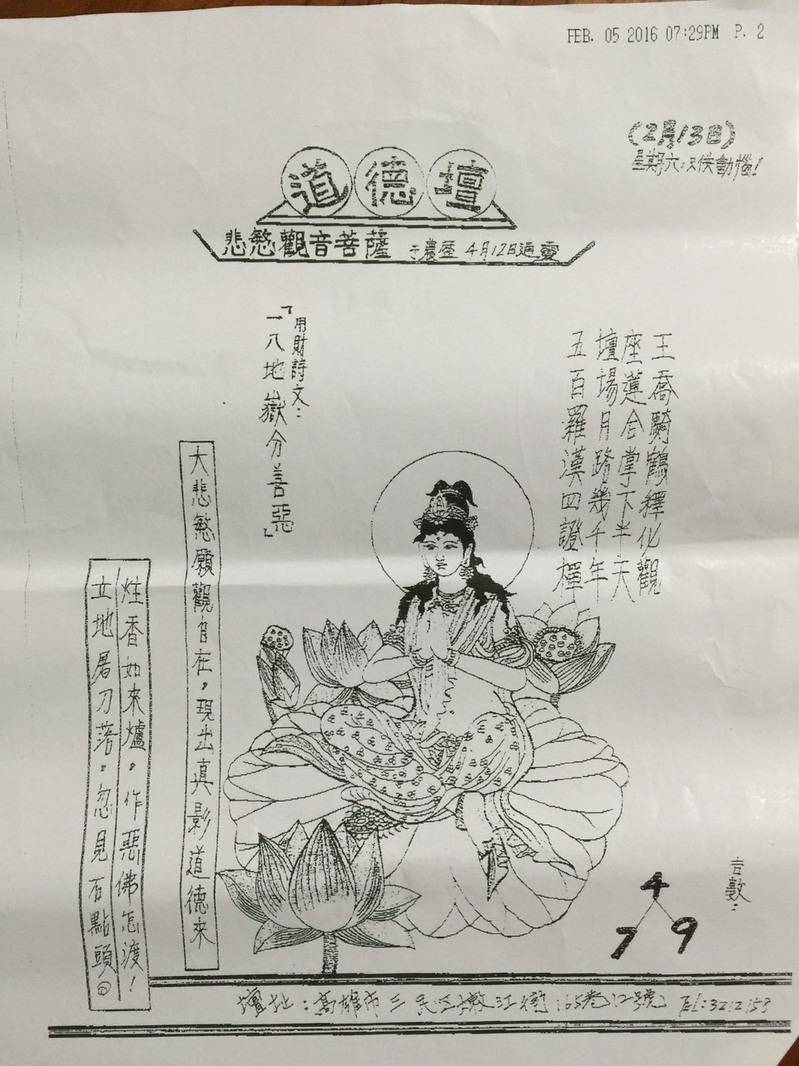 FEB. 05 2016 07:29PM P. 2
(2月13日)
星期六:只供動惱!
道德壇
悲愍觀音菩薩 于農歷 4月12日通靈
王喬騎鶴釋化觀
座蓮合掌下半天
壇場月踏幾千年
五百羅漢四證禪
用財詩文:
「一八地嶽分善惡」
大悲愍願觀自在,現出真影道德來
炷香如來爐,作惡佛怎渡!
立地屠刀落,忽見石點頭。
吉數:
4
7 9
壇址:高雄市三民区嫩江街165巷12號 Tel:3212153